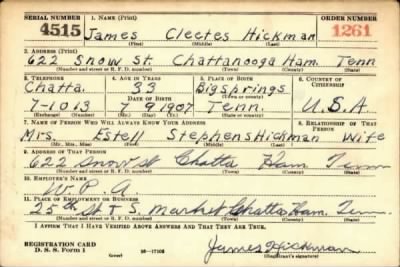 SERIAL NUMBER 1. NAME (Print) ORDER NUMBER
4515 James Cleetes Hickman 1261
(First) (Middle) (Last)
2. ADDRESS (Print)
622 Snow St. Chattanooga Ham. Tenn
(Number and street or R. F. D. number) (Town) (County) (State)
3. TELEPHONE 4. AGE IN YEARS 5. PLACE OF BIRTH 6. COUNTRY OF CITIZENSHIP
Chatta. 33 Big springs
DATE OF BIRTH
7-1013 7 9 1907 Tenn. U.S.A
(Exchange) (Number) (Mo.) (Day) (Yr.) (State or country)
7. NAME OF PERSON WHO WILL ALWAYS KNOW YOUR ADDRESS 8. RELATIONSHIP OF THAT PERSON
Mrs. Estell Stephens Hickman Wife
(Mr., Mrs., Miss) (First) (Middle) (Last)
9. ADDRESS OF THAT PERSON
622 Snow St Chatta Ham Tenn
(Number and street or R. F. D. number) (Town) (County) (State)
10. EMPLOYER'S NAME
W.P.A
11. PLACE OF EMPLOYMENT OR BUSINESS
25th St & S. Market Chatta Ham. Tenn.
(Number and street or R. F. D. number) (Town) (County) (State)
I AFFIRM THAT I HAVE VERIFIED ABOVE ANSWERS AND THAT THEY ARE TRUE.
REGISTRATION CARD
D. S. S. Form 1 (over) James Hickman
(Registrant's signature)